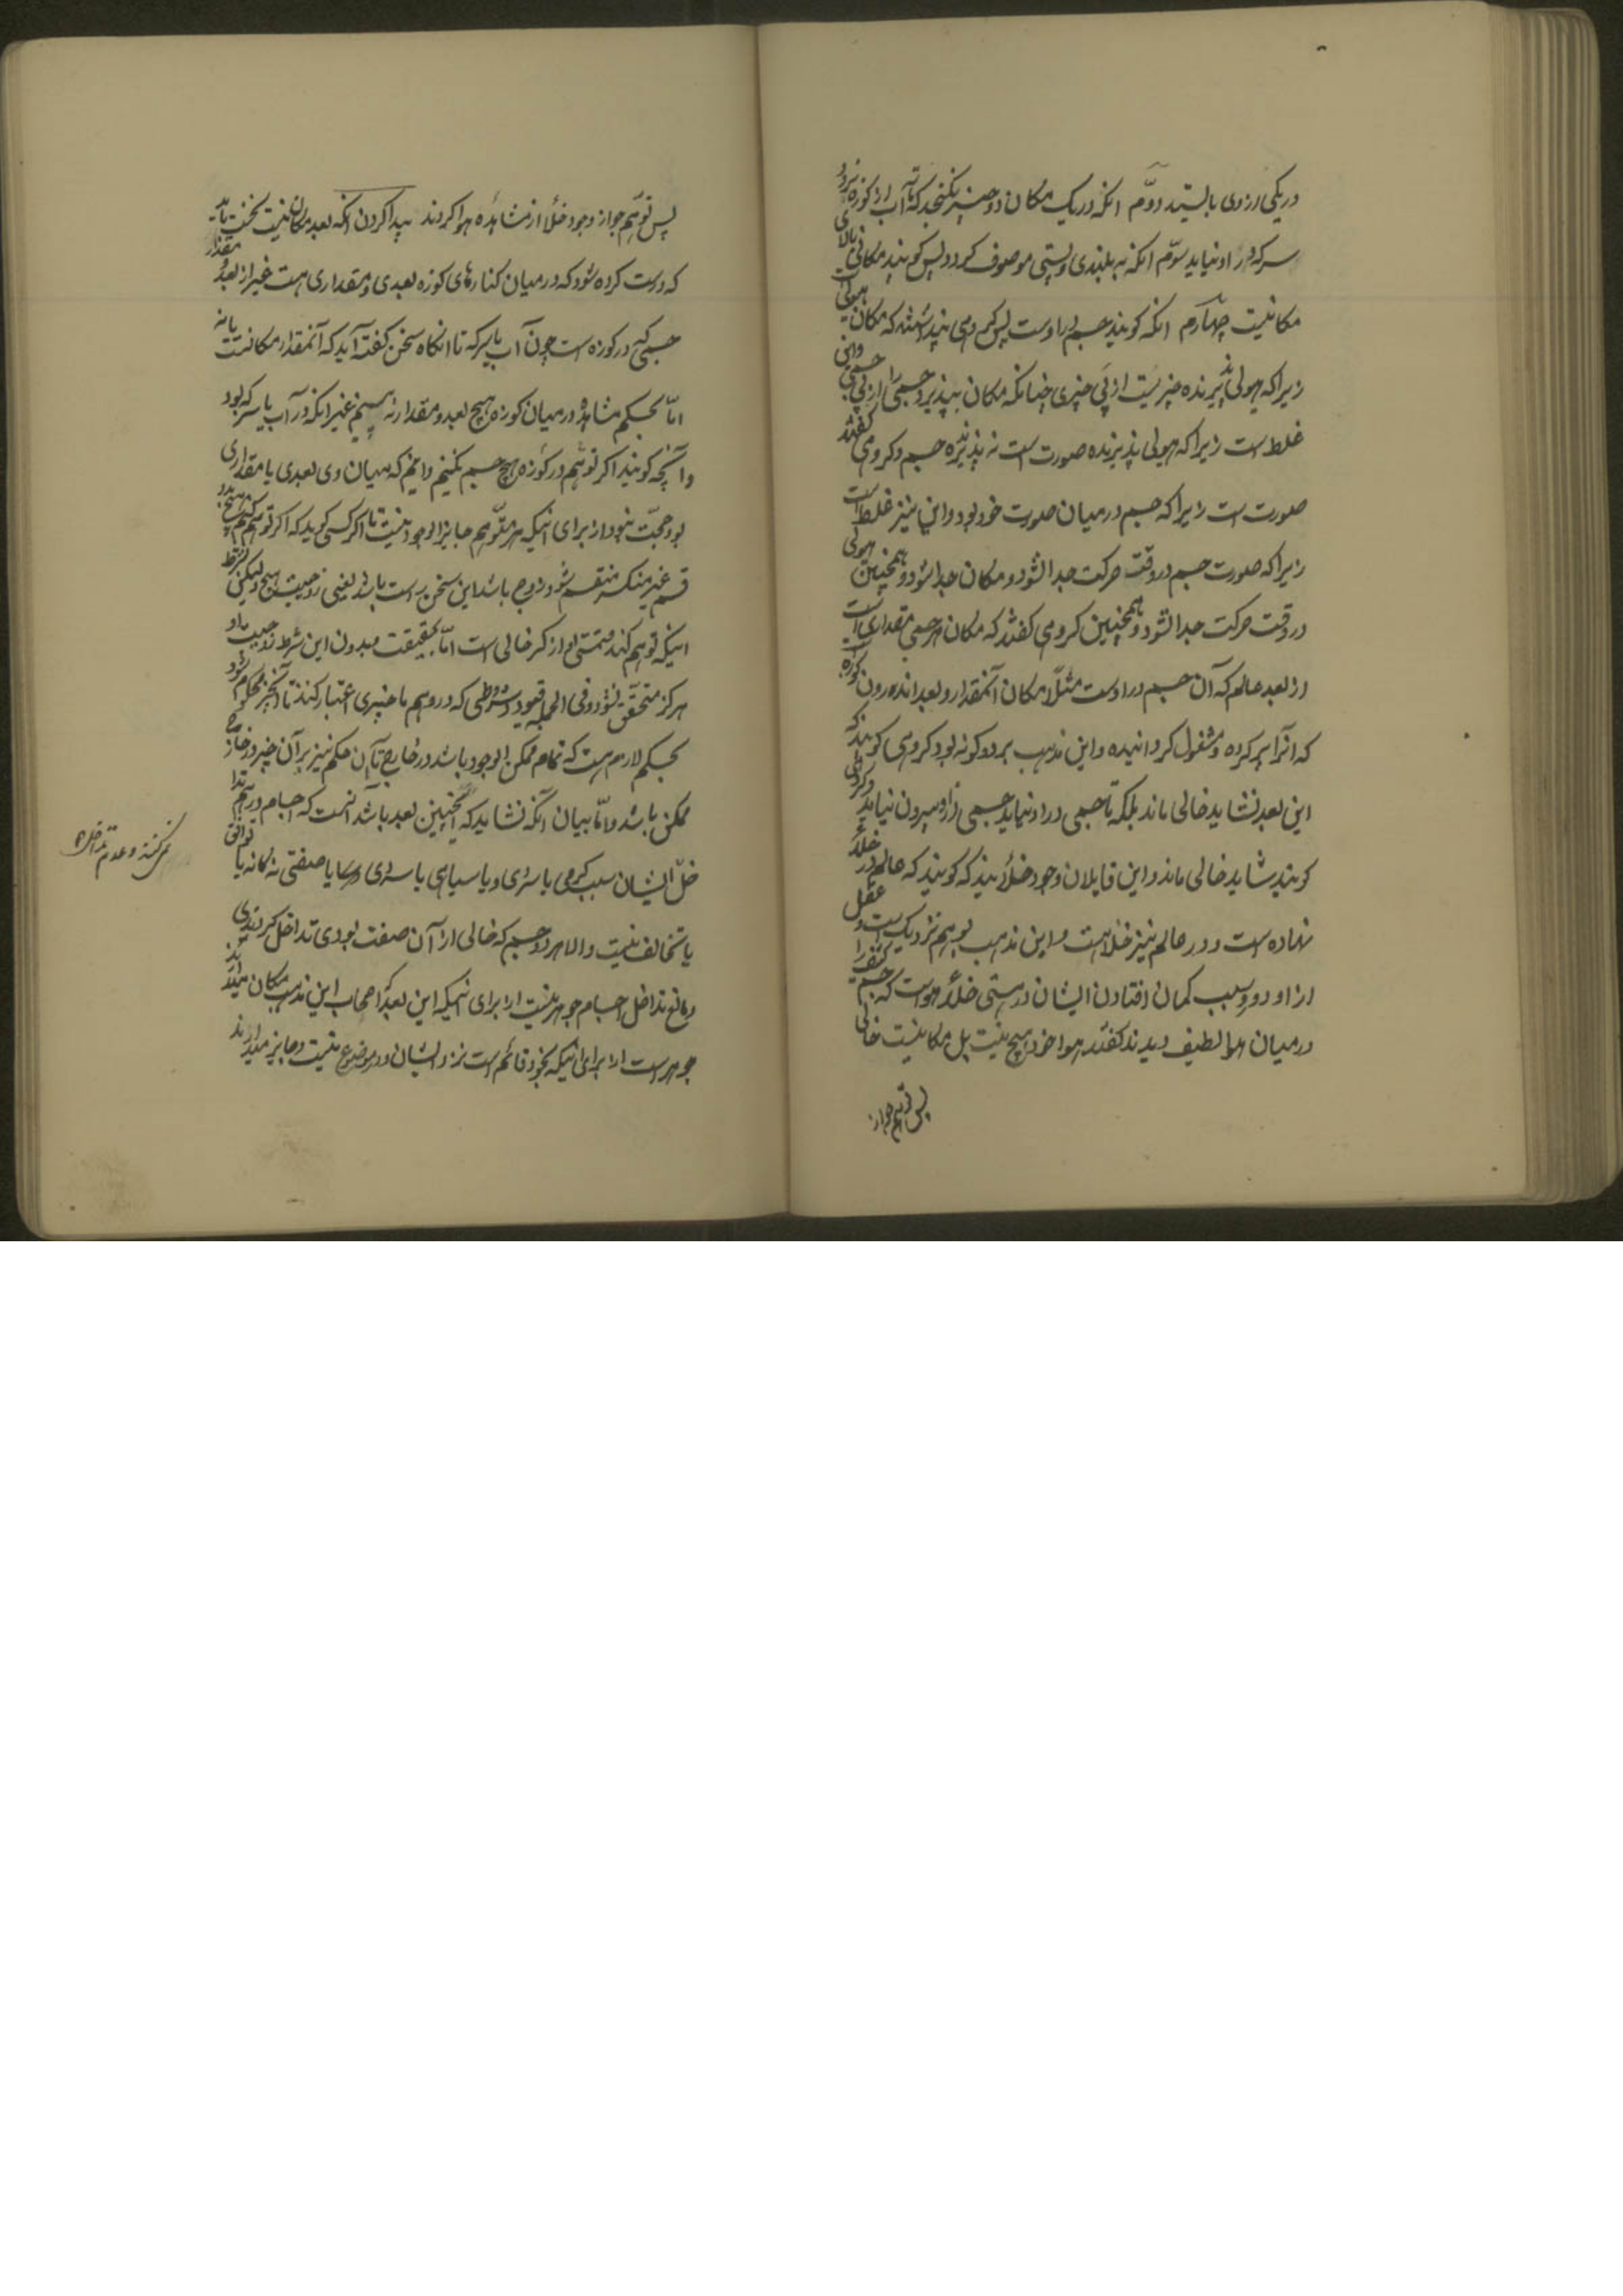 در یکی از وی بایستد دوّم آنکه در یک مکان دو چیز نگنجد که تا آب از کوزه نرود
سرکه در او نیاید سوّم آنکه به بلندی و پستی موصوف گردد پس گویند مکانی بالای
مکانیست چهارم آنکه گویند جسم در اوست پس گروهی پنداشتند که مکان هیولی است
زیرا که هیولی پذیرنده چیزیست از پی چیزی چنانکه مکان بپذیرد جسمی را از پی جسمی و این
غلط است زیرا که هیولی پذیرنده صورت است نه پذیرنده جسم و گروهی گفتند
صورت است زیرا که جسم در میان صورت خود بود و این نیز غلط است
زیرا که صورت جسم در وقت حرکت جدا نشود و مکان جدا شود و همچنین هیولی
در وقت حرکت جدا نشود و همچنین گروهی گفتند که مکان هر جسمی مقداری است
از بعد عالم که آن جسم در اوست مثلاً مکان آنمقدار و بعد اندرون کوزه است
که آنرا پر کرده و مشغول گردانیده و این مذهب بر دو گونه بود گروهی گویند که
این بعد نشاید خالی ماند بلکه تا جسمی در او نیاید جسمی از او بیرون نیاید و گروهی
گویند شاید خالی ماند و این قایلان وجود خلأ‌اند که گویند که عالم در خلأ
نهاده است و در عالم نیز خلا هست و این مذهب بوهم نزدیک است و عقل
از او دور و سبب گمان افتادن ایشان درستی خلأ هواست که جسم کثیف را
در میان هوا لطیف دیدند گفتند هوا خود هیچ نیست پس مکانیست خالی
پس توهّم جواز
پس توهّم جواز وجود خلأ از مشاهده هوا کردند پیدا کردن آنکه بعد مکان نیست نخست باید
که درست کرده شود که در میان کنارهای کوزه بعدی و مقداری هست غیر از بعد و مقدار
جسمی که در کوزه است چون آب یا سرکه تا آنگاه سخن گفته آید که آنمقدار مکانست یا نه
امّا بحکم مشاهده در میان کوزه هیچ بعد و مقدار نه‌بینیم غیر آنکه در آب یا سرکه بود
و آنچه گویند اگر توهّم در کوزه هیچ جسم نکنیم دانیم که میان وی بعدی یا مقداری
بود حجّت نبود از برای اینکه هر متوهّم جایز الوجود نیست تا اگر کسی گوید که اگر توهّم کنیم پنج بدو
قسم غیر منکسر منقسم شود زوج باشد این سخن راست باشد یعنی زوجیت پنج ولیکن بشرط
اینکه توهّم کند قسمتی که از کسر خالی است امّا بحقیقت بدون این شرط زوجیت او
هرگز متحقّق نشود و فی الجمله قیود و شروطی که در وهم با چیزی اعتبار کنند تا آنچیز محکوم شود
بحکم لازم است که تمام ممکن الوجود باشد در خارج تا آن حکم نیز بر آن چیز در خارج
ممکن باشد و امّا بیان آنکه نشاید که اینچنین بعد باشد آنست که اجسام در هم تدا
خل ایشان سبب گرمی یا سردی و یا سیاهی یا سردی و سایر صفتی نه‌گانه یا توافق
یا تخالف نیست والا هر دو جسم که خالی از آن صفت بودی تداخل کردندی
و مانع تداخل اجسام جوهر نیست از برای اینکه این بعد را اصحاب این مذهب مکان میدانند
جوهر است از برای اینکه بخود قائم است نزد ایشان و در موضوع نیست و جایز میدارند